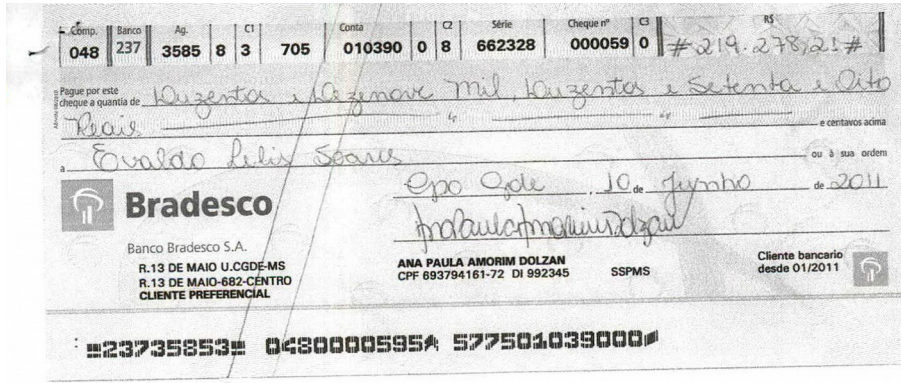 Comp. Banco Ag. C1 Conta C2 Série Cheque nº C3 R$
048 237 3585 8 3 705 010390 0 8 662328 000059 0 #219.278,21#
Pague por este
cheque a quantia de Duzentos e Dezenove mil Duzentos e Setenta e Oito
Reais e centavos acima
a Evaldo Lelis Soares ou à sua ordem
Cpo Gde, 10 de Junho de 2011
Bradesco
Banco Bradesco S.A.
R.13 DE MAIO U.CGDE-MS
R.13 DE MAIO-682-CENTRO
CLIENTE PREFERENCIAL
ANA PAULA AMORIM DOLZAN
CPF 693794161-72 DI 992345 SSPMS
Cliente bancario
desde 01/2011
23735853 0480000595 577501039000